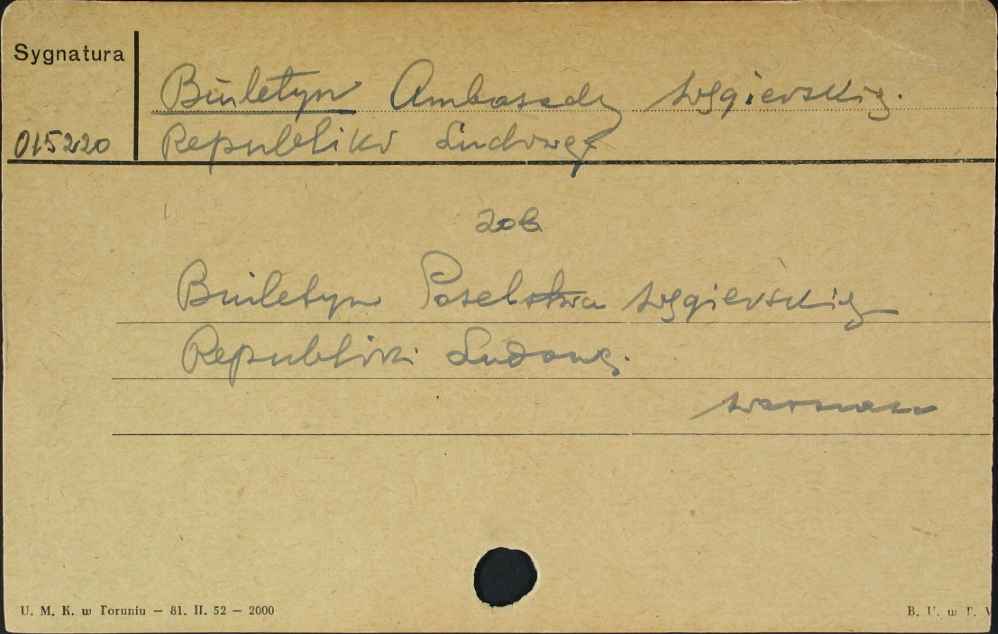 Sygnatura
015220
Biuletyn Ambasady Węgierskiej
Republiki Ludowej
zob
Biuletyn Poselstwa Węgierskiej
Republiki Ludowej.
Warszawa
U. M. K. w Toruniu — 81. II. 52 — 2000
B. U. w T.